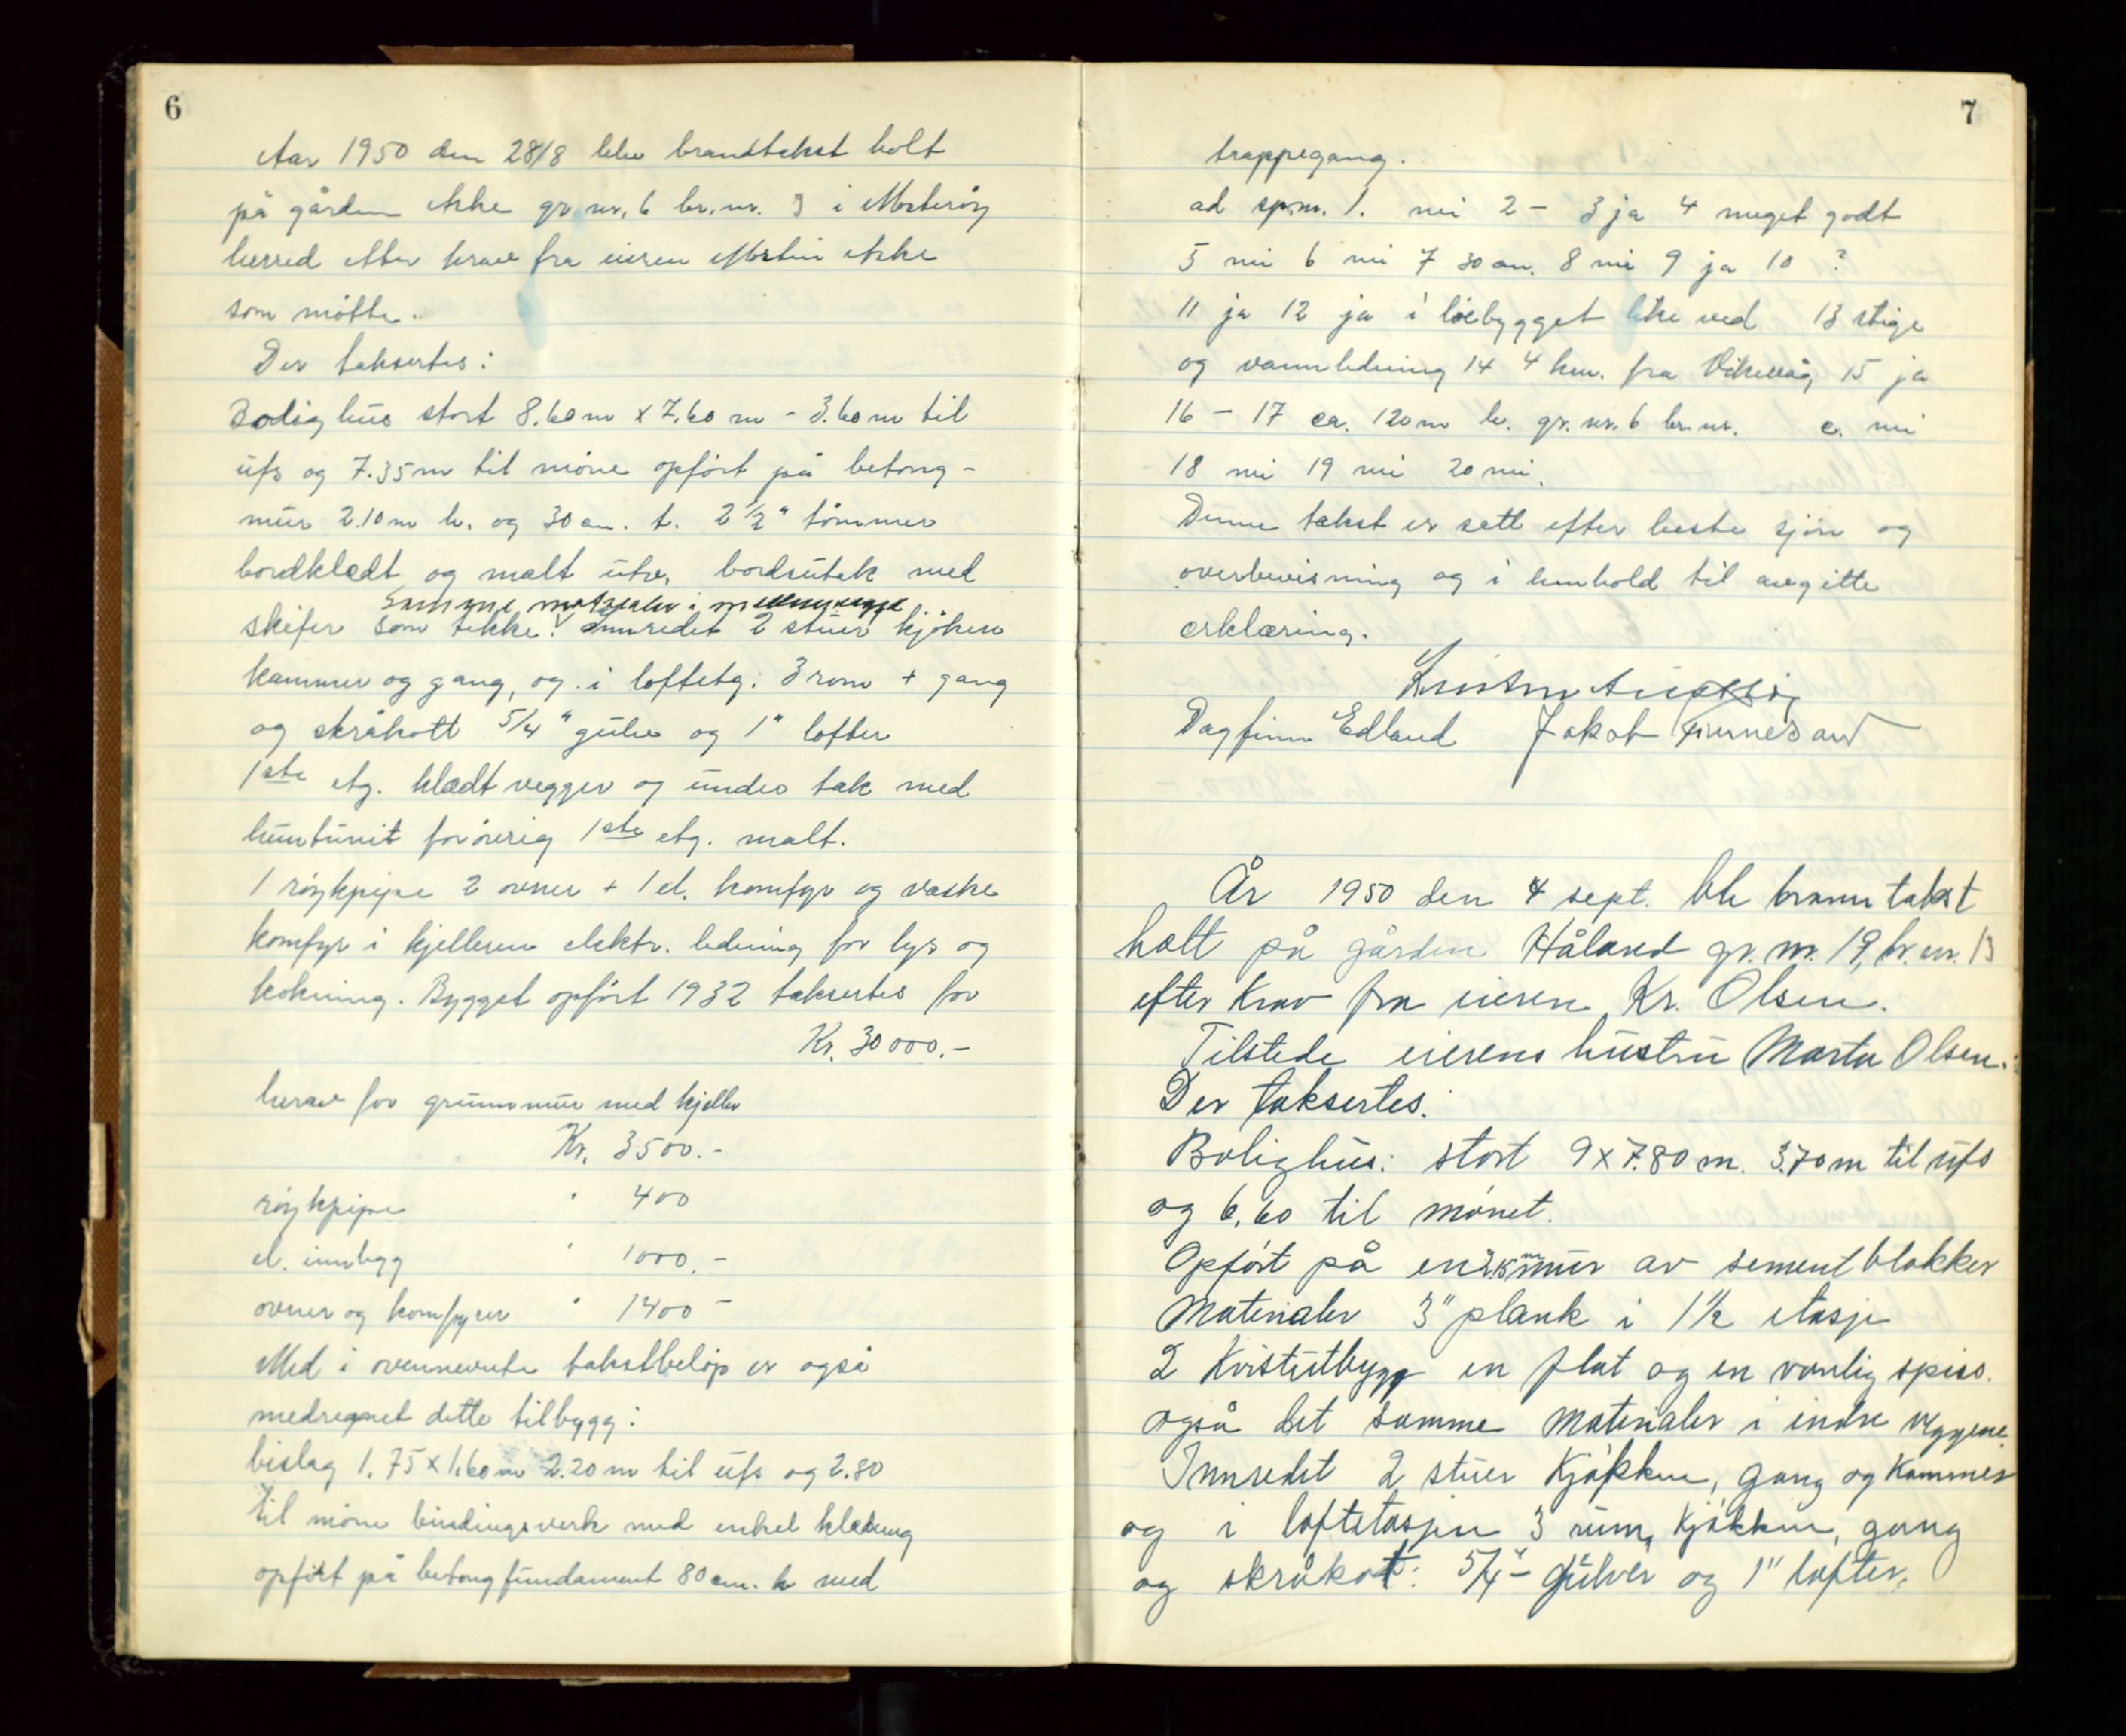 6
Aar 1950 den 28/8 blev brandtakst holt
på gården Askje gr. nr. 6 br. nr. 3 i Mosterøy
herred etter krav fra eieren Martin Askje
som møtte.
Der taksertes:
Bolighus stort 8.60 m x 7.60 m - 3.60 m til
ufs og 7.35 m til møne opført på betong-
mur 2.10 m h. og 30 cm. t. 2 1/2" tømmer
bordklædt og malt utv. bordsutak med
Samme matrealer i mellemvegge
skifer som tekke. Innredet 2 stuer kjøken
kammer og gang, og i loftetg. 3 rom + gang
og skråkott 5/4" gulv og 1" lofter
1ste etg. klædt vegger og under tak med
huntunit forøvrig 1ste etg. malt.
1 røykpipe 2 ovner + 1 el. komfyr og vaske
komfyr i kjelleren elektr. ledning for lys og
kokning. Bygget opført 1932 taksertes for
Kr. 30000.-
herav for grunnmur med kjeller
Kr. 3500.-
røykpipe " 400
el. innlegg " 1000.-
ovner og komfyrer " 1400 -
Med i ovennevnte takstbeløp er også
medregnet dette tilbygg:
bislag 1.75 x 1.60 m 2.20 m til ufs og 2.80
til møne bindingsverk med enkel kledning
opført på betongfundament 80 cm. h med
7
trappegang.
ad sp.m. 1. nei 2 - 3 ja 4 meget godt
5 nei 6 nei 7 30 cm. 8 nei 9 ja 10 ?
11 ja 12 ja i løebygget like ved 13 stige
og vannledning 14 4 km. fra Vikevåg 15 ja
16 - 17 ca. 120 m b. gr. nr. 6 br. nr. c. nei
18 nei 19 nei 20 nei.
Denne takst er satt efter beste sjøn og
overbevisning og i henhold til avgitte
erklæring.
Dagfinn Edland Jakob Finnesand
År 1950 den 4 sept. ble branntakst
holt på gården Håland gr. nr. 19, br. nr. 13
efter krav fra eieren Kr. Olsen.
Tilstede eierens hustru Marta Olsen.
Der taksertes.
Bolighus: stort 9 x 7.80 m. 3.70 m til ufs
og 6,60 til mønet.
Opført på en 2.15 m mur av sementblokker
Materialer 3" plank i 1 1/2 etasje
2 Kvistutbygg en flat og en vanlig spiss.
også det samme materialer i indre veggene.
Innredet 2 stuer Kjøkken, gang og Kammer
og i loftetasjen 3 rum, Kjøkken, gang
og skråkot: 5/4" - gulver og 1" lofter.